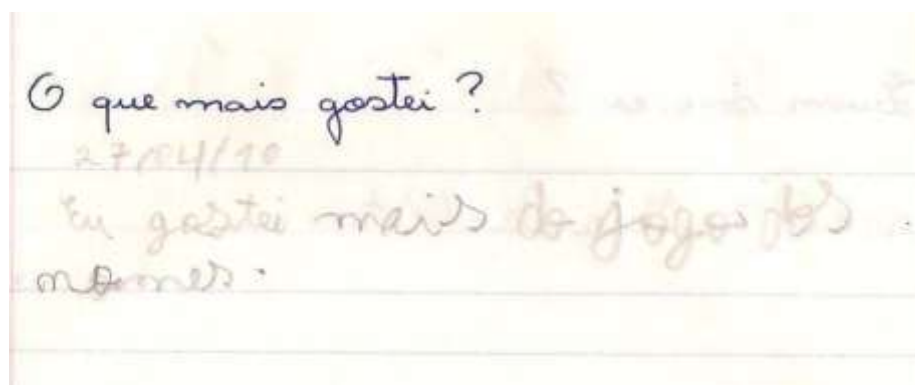 O que mais gostei?
27/04/10
Eu gostei mais do jogo dos
nomes.